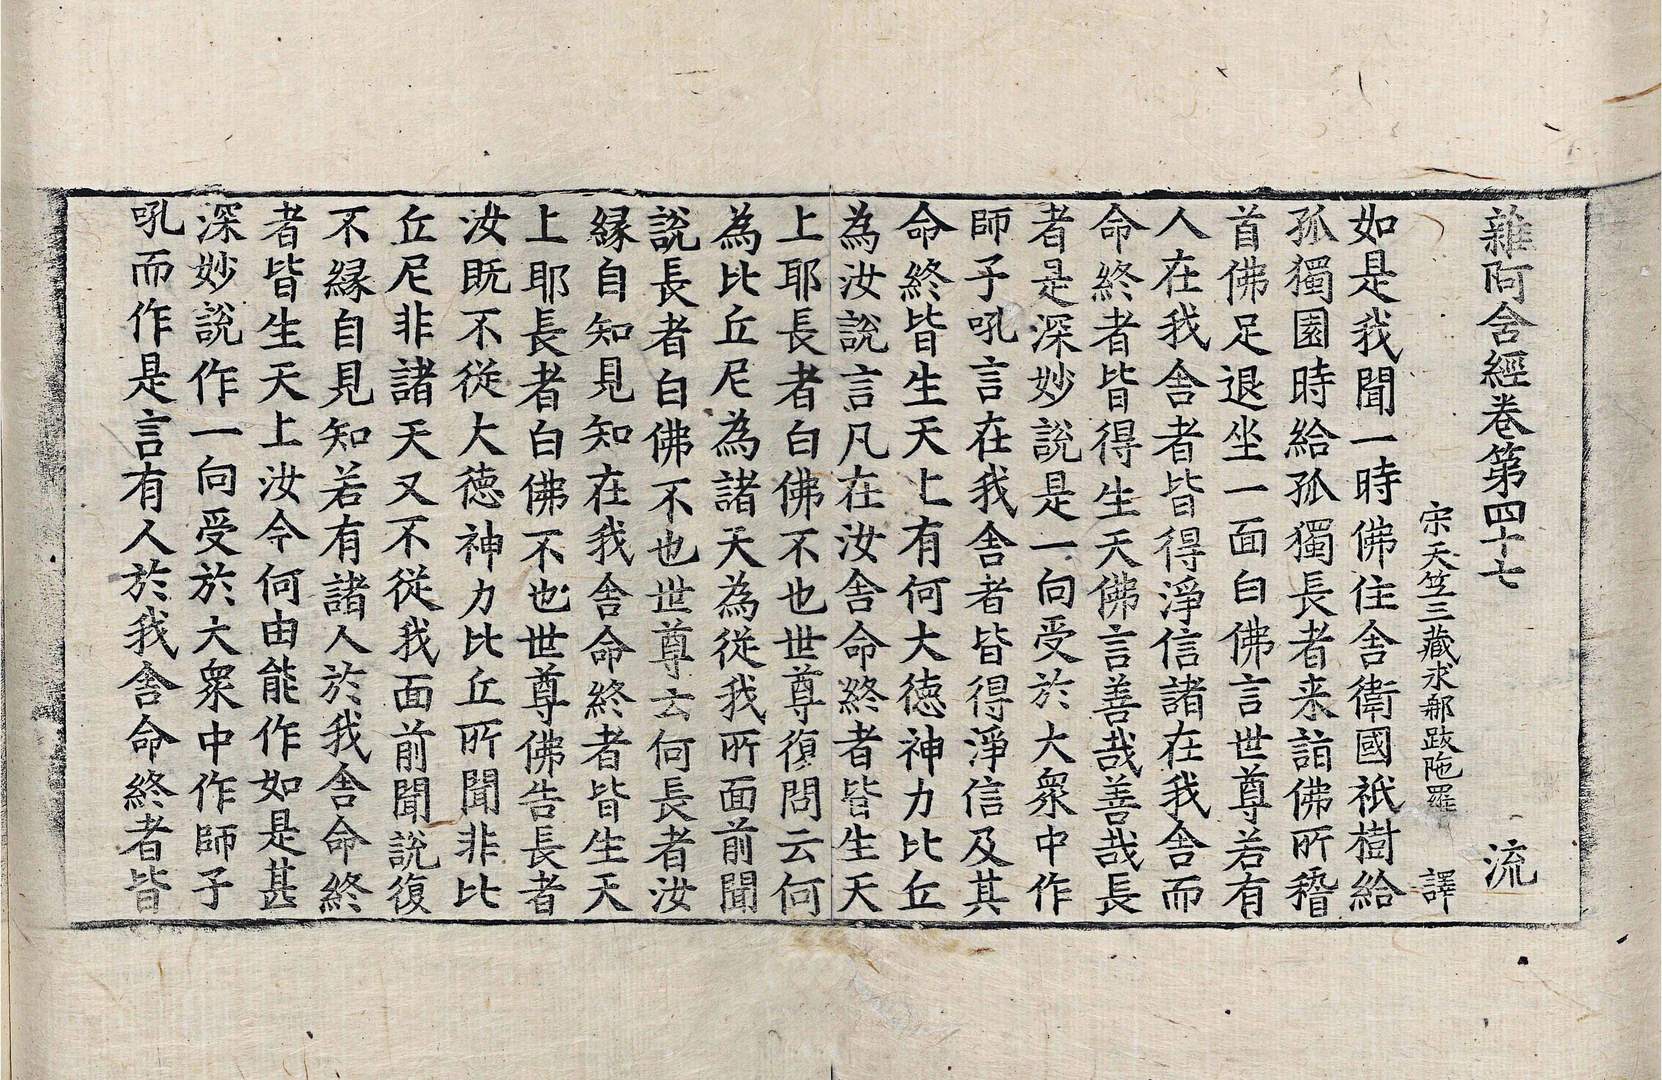 雜阿含經卷第四十七 流
宋天竺三藏求那跋陁羅 譯
如是我聞一時佛住舍衛國祇樹給
孤獨園時給孤獨長者来詣佛所稽
首佛足退坐一面白佛言世尊若有
人在我舍者皆得淨信諸在我舍而
命終者皆得生天佛言善哉善哉長
者是深妙說是一向受於大衆中作
師子吼言在我舍者皆得淨信及其
命終皆生天上有何大德神力比丘
為汝說言凡在汝舍命終者皆生天
上耶長者白佛不也世尊復問云何
為比丘尼為諸天為從我所面前聞
說長者白佛不也世尊云何長者汝
縁自知見知在我舍命終者皆生天
上耶長者白佛不也世尊佛告長者
汝既不從大德神力比丘所聞非比
丘尼非諸天又不從我面前聞說復
不縁自見知若有諸人於我舍命終
者皆生天上汝今何由能作如是甚
深妙說作一向受於大衆中作師子
吼而作是言有人於我舍命終者皆